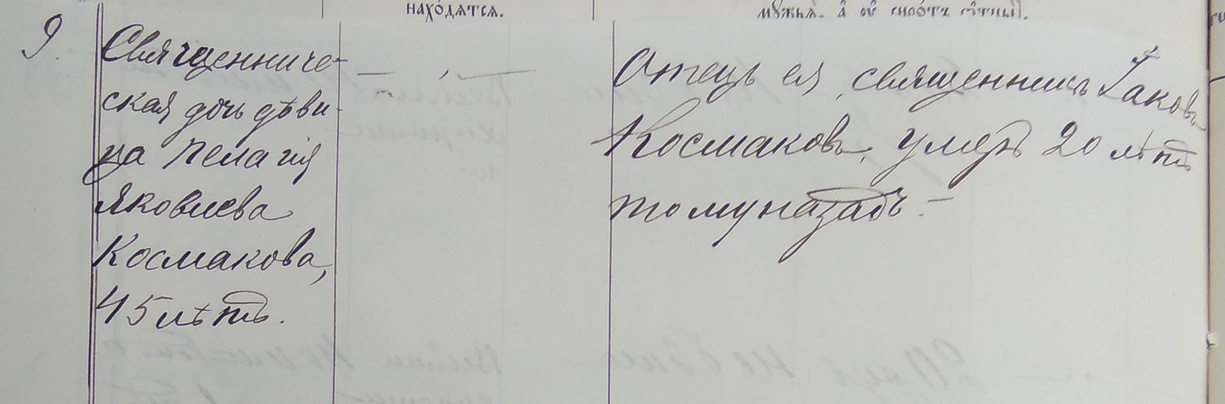 находятся.
мꙋжья, а ꙋ сиротъ ѻтцы].
9.
Священниче-
ская дочь дѣви-
ца Пелагія
Яковлева
Космакова,
45 лѣтъ.
—
Отецъ ея, священникъ Іаковъ
Космаковъ, умеръ 20 лѣтъ
тому назадъ. —